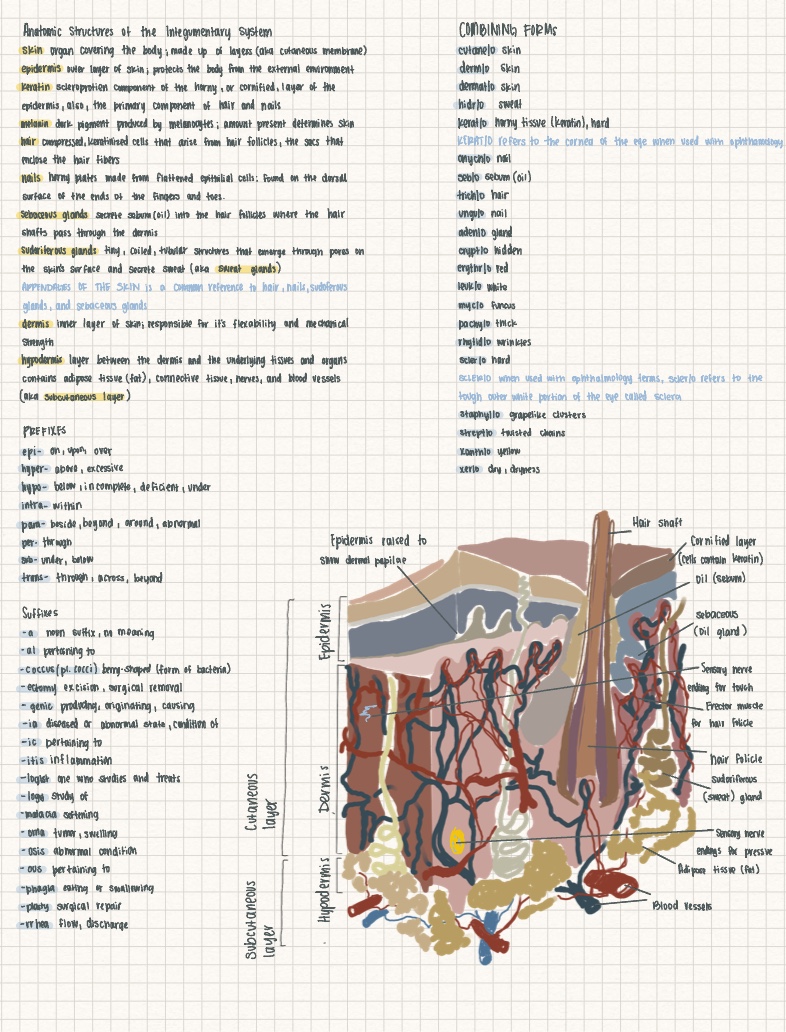 Anatomic Structures of the Integumentary System
skin organ covering the body; made up of layers (aka cutaneous membrane)
epidermis outer layer of skin; protects the body from the external environment
keratin scleroprotien component of the horny, or cornified, layer of the
epidermis, also, the primary component of hair and nails
melanin dark pigment produced by melanocytes; amount present determines skin
hair compressed, keratinized cells that arise from hair follicles, the sacs that
enclose the hair fibers
nails horny plates made from flattened epithelial cells; found on the dorsal
surface of the ends of the fingers and toes.
sebaceous glands secrete sebum (oil) into the hair follicles where the hair
shafts pass through the dermis
sudoriferous glands tiny, coiled, tubular structures that emerge through pores on
the skin's surface and secrete sweat (aka sweat glands)
APPENDAGES OF THE SKIN is a common reference to hair, nails, sudoferous
glands, and sebaceous glands
dermis inner layer of skin; responsible for it's flexability and mechanical
strength
hypodermis layer between the dermis and the underlying tissues and organs
contains adipose tissue (fat), connective tissue, nerves, and blood vessels
(aka subcutaneous layer)
PREFIXES
epi- on, upon, over
hyper- above, excessive
hypo- below, incomplete, deficient, under
intra- within
para- beside, beyond, around, abnormal
per- through
sub- under, below
trans- through, across, beyond
Suffixes
-a noun suffix, no meaning
-al pertaining to
-coccus (pl. cocci) berry-shaped (form of bacteria)
-ectomy excision, surgical removal
-genic producing, originating, causing
-ia diseased or abnormal state, condition of
-ic pertaining to
-itis inflammation
-logist one who studies and treats
-logy study of
-malacia softening
-oma tumor, swelling
-osis abnormal condition
-ous pertaining to
-phagia eating or swallowing
-plasty surgical repair
-rrhea flow, discharge
COMBINING FORMS
cutane/o skin
derm/o skin
dermat/o skin
hidr/o sweat
kerat/o horny tissue (keratin), hard
KERAT/O refers to the cornea of the eye when used with ophthamology
onych/o nail
seb/o sebum (oil)
trich/o hair
ungu/o nail
aden/o gland
crypt/o hidden
erythr/o red
leuk/o white
myc/o fungus
pachy/o thick
rhytid/o wrinkles
scler/o hard
SCLER/O when used with ophthalmology terms, scler/o refers to the
tough outer white portion of the eye called sclera
staphyl/o grapelike clusters
strept/o twisted chains
xanth/o yellow
xer/o dry, dryness
Epidermis raised to
show dermal papilae
Hair shaft
Cornified layer
(cells contain keratin)
Oil (sebum)
sebaceous
(oil gland)
Sensory nerve
ending for touch
Erector muscle
for hair folicle
Hair folicle
sudoriferous
(sweat) gland
Sensory nerve
endings for pressure
Adipose tissue (fat)
Blood vessels
Epidermis
Dermis
Hypodermis
Cutaneous
layer
Subcutaneous
layer